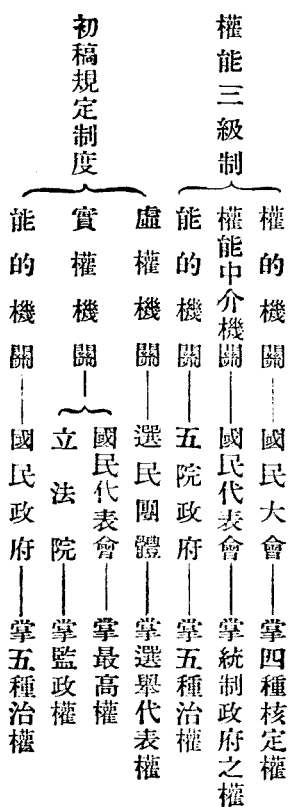 權能三級制
權的機關——國民大會——掌四種核定權
權能中介機關——國民代表會——掌統制政府之權
能的機關——五院政府——掌五種治權
初稿規定制度
虛權機關——選民團體——掌選舉代表權
實權機關—
國民代表會——掌最高權
立法院——掌監政權
能的機關——國民政府——掌五種治權